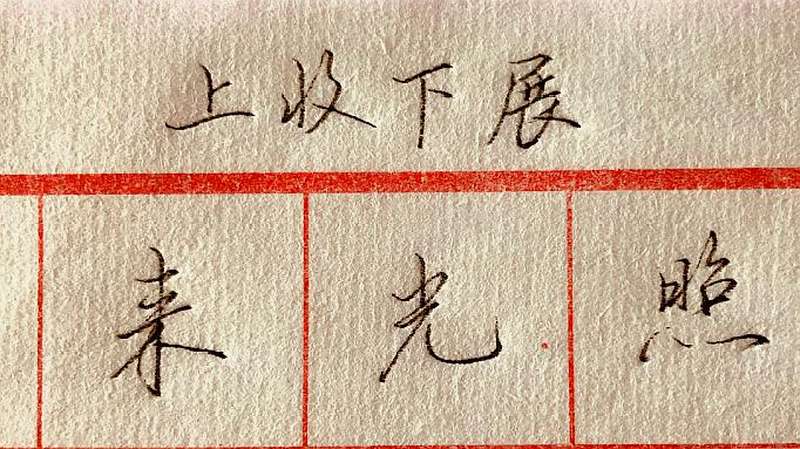 上收下展
来光照